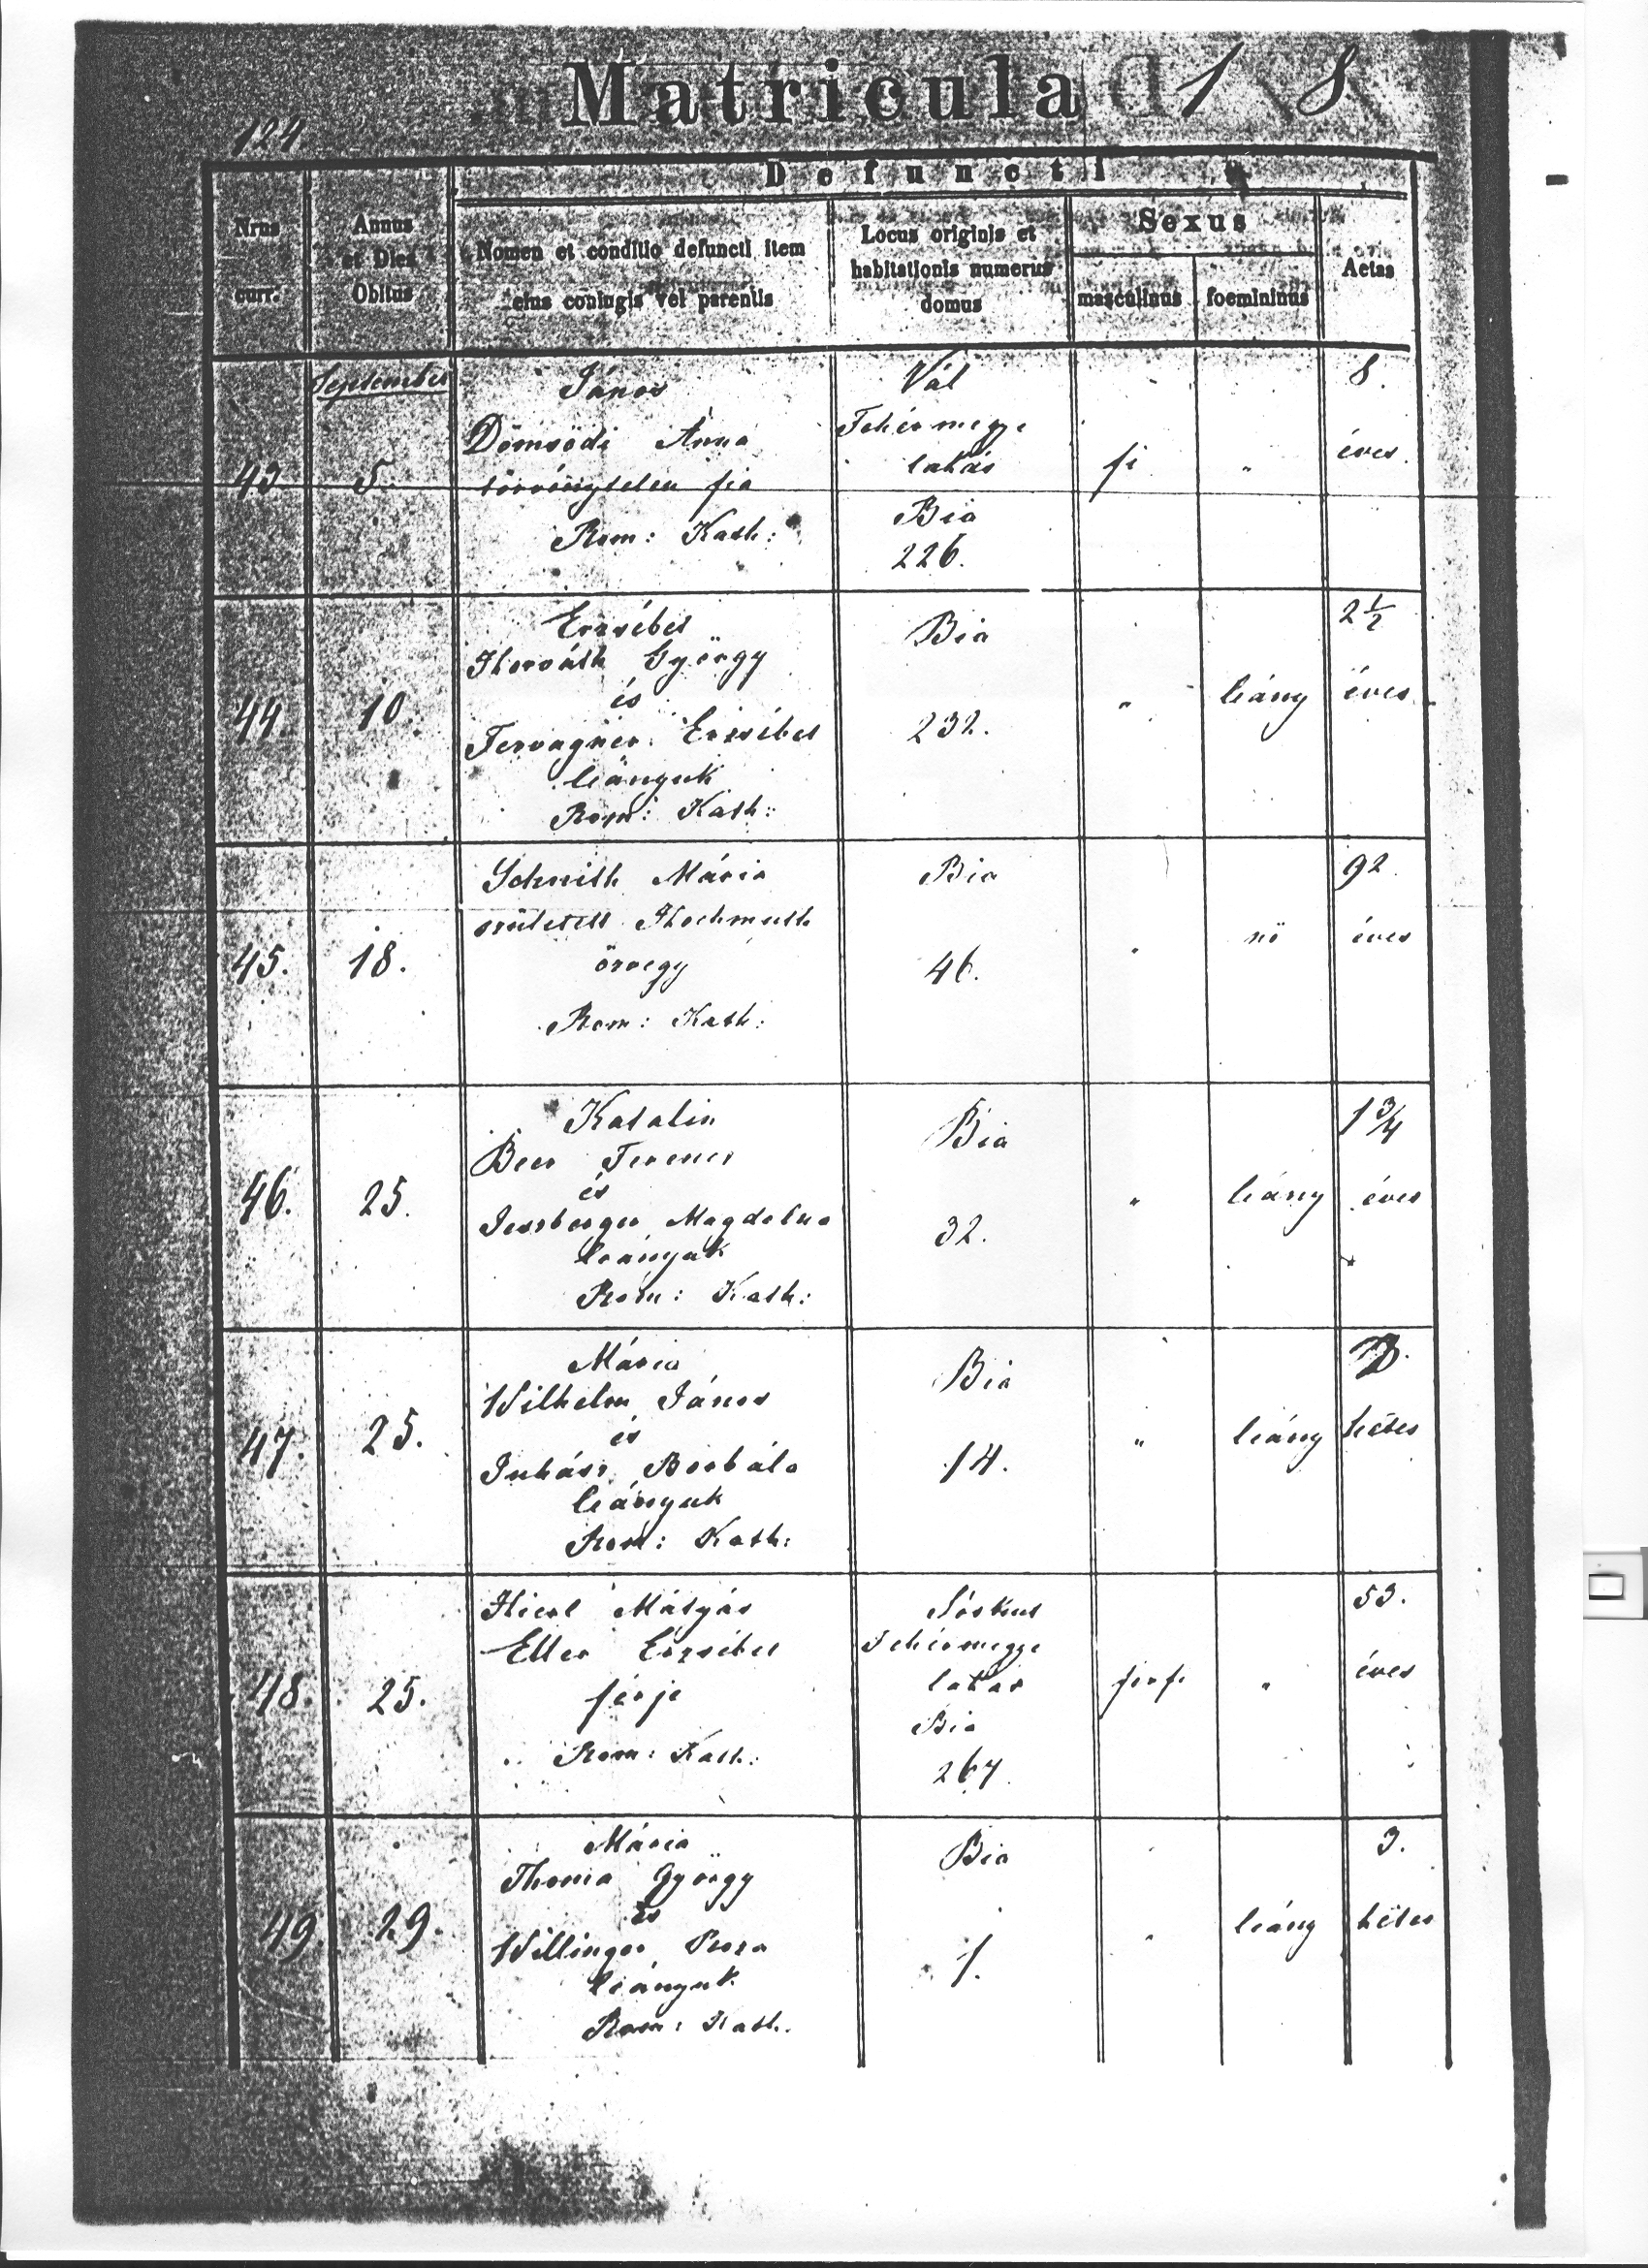 Matricula 1 8
124
Defuncti
Nrus curr.
Annus et Dies Obitus
Nomen et conditio defuncti item eius coniugis vel parentis
Locus originis et habitationis numerus domus
Sexus
masculinus
foemininus
Aetas
September
43. 5.
János
Dömsödi Anna
törvénytelen fia
Rom: Kath:
Vál
Fehérmegye
lakás
Bia
226.
fi "
8.
éves.
44. 10.
Erzsébet
Horváth György
és
Erzsébet
leányuk
Rom: Kath:
Bia
232.
" leány
2 1/2
éves
45. 18.
Schmith Mária
született Hochmuth
özvegy
Rom: Kath:
Bia
46.
" nő
92
éves
46. 25.
Katalin
Beer Ferencz
és
Magdolna
leányuk
Rom: Kath:
Bia
32.
" leány
1 3/4
éves
47. 25.
Mária
Wilhelm János
és
Juhász Borbála
leányuk
Rom: Kath:
Bia
14.
" leány
hetes
48. 25.
Mátyás
Etler Erzsébet
férje
Rom: Kath:
Sóskut
Fehérmegye
lakás
Bia
267.
férf. "
53.
éves
49. 29.
Mária
Thoma György
és
Willinger Roza
leányuk
Rom: Kath.
Bia
1.
" leány
3.
hetes